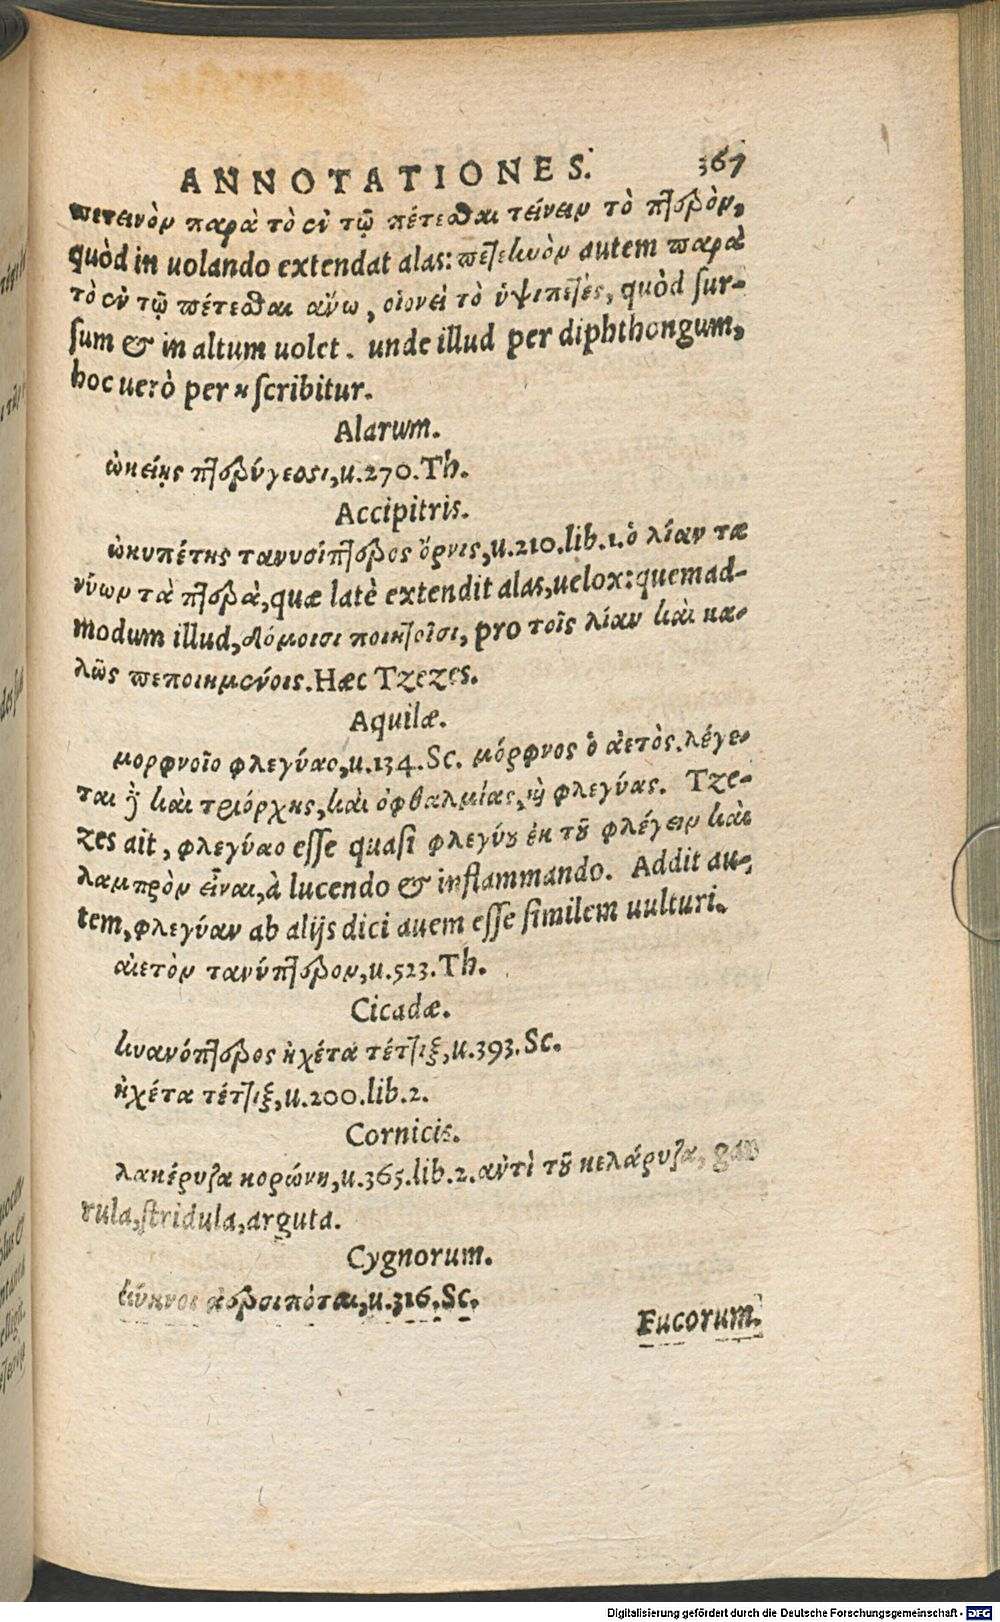 ANNOTATIONES. 367
πετεινὸν παρὰ τὸ ἐν τῷ πέτεσθαι τείνειν τὸ πτερὸν,
quòd in uolando extendat alas: πετεηνὸν autem παρὰ
τὸ ἐν τῷ πέτεσθαι ἄνω, οἱονεὶ τὸ ὑψιπετὲς, quòd sur-
sum & in altum uolet. unde illud per diphthongum,
hoc uerò per η scribitur.
Alarum.
ὠκείῃς πτερύγεσσι, u.270.Th.
Accipitris.
ὠκυπέτης τανυσίπτερος ὄρνις, u.210.lib.1. ὁ λίαν τα
νύων τὰ πτερὰ, quæ latè extendit alas, uelox: quemad-
modum illud, δόμοισι ποιητοῖσι, pro τοῖς λίαν καὶ κα-
λῶς πεποιημένοις. Hæc Tzezes.
Aquilæ.
μορφνοῖο φλεγύαο, u.134.Sc. μόρφνος ὁ ἀετὸς. λέγε-
ται δὲ καὶ τριόρχης, καὶ ὀφθαλμίας, καὶ φλεγύας. Tze-
zes ait, φλεγύαο esse quasi φλεγύου ἐκ τοῦ φλέγειν καὶ
λαμπρὸν εἶναι, à lucendo & inflammando. Addit au-
tem, φλεγύαν ab alijs dici auem esse similem uulturi.
αἰετὸν τανύπτερον, u.523.Th.
Cicadæ.
κυανόπτερος ἠχέτα τέττιξ, u.393.Sc.
ἠχέτα τέττιξ, u.200.lib.2.
Cornicis.
λακέρυζα κορώνη, u.365.lib.2. ἀντὶ τοῦ κελάρυζα, gar
rula, stridula, arguta.
Cygnorum.
κύκνοι ἀερσιπόται, u.316.Sc.
Fucorum.
Digitalisierung gefördert durch die Deutsche Forschungsgemeinschaft - DFG